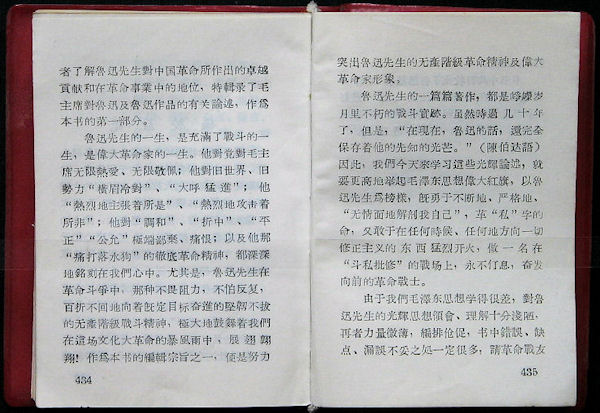 者了解魯迅先生對中国革命所作出的卓越
貢献和在革命事業中的地位，特輯录了毛
主席對魯迅及魯迅作品的有关論述，作爲
本书的第一部分。
魯迅先生的一生，是充滿了戰斗的一
生，是偉大革命家的一生。他對党對毛主
席无限熱爱、无限敬佩；他對旧世界、旧
勢力“橫眉冷對”、“大呼猛進”；他
“熱烈地主張着所是”、“熱烈地攻击着
所非”；他對“調和”、“折中”、“平
正”“公允”極端鄙棄、痛恨；以及他那
“痛打落水狗”的徹底革命精神，都深深
地銘刻在我們心中。尤其是，魯迅先生在
革命斗爭中，那种不畏阻力，不怕反复，
百折不回地向着旣定目标奋進的堅韌不拔
的无產階級戰斗精神，極大地鼓舞着我們
在這場文化大革命的暴風雨中，展翅翺
翔！作爲本书的編輯宗旨之一，便是努力
434
突出魯迅先生的无產階級革命精神及偉大
革命家形象。
魯迅先生的一篇篇著作，都是崢嶸岁
月里不朽的戰斗實跡。虽然時過几十年
了，但是，“在現在，魯迅的話，還完全
保存着他的先知的光芒。”（陳伯达語）
因此，我們今天來学習這些光輝論述，就
要更高地举起毛澤东思想偉大红旗，以魯
迅先生爲榜樣，旣勇于不断地、严格地、
“无情面地解剖我自己”，革“私”字的
命，又敢于在任何時候、任何地方向一切
修正主义的东西猛烈开火，做一名在
“斗私批修”的戰場上，永不忊息，奋发
向前的革命戰士。
由于我們毛澤东思想学得很差，對魯
迅先生的光輝思想領會、理解十分淺陋，
再者力量微薄，編排倉促，书中錯誤、缺
点、漏誤不妥之処一定很多，請革命戰友
435